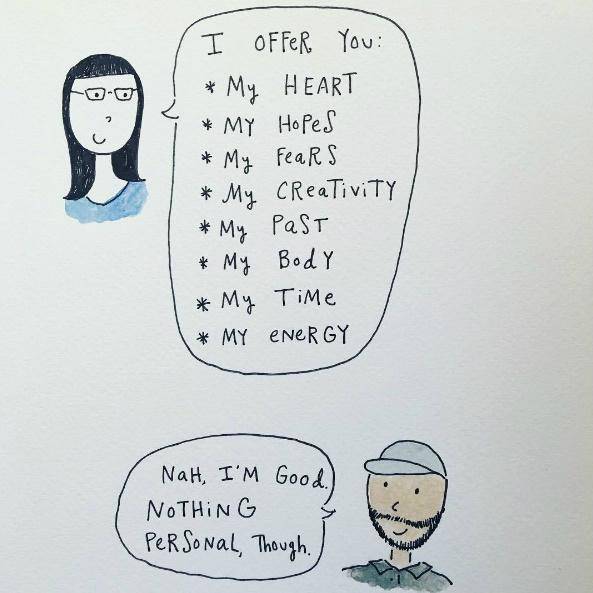 I OFFeR You:
* My HEART
* MY HoPeS
* My FeaRS
* My CReaTiviTY
* My PaST
* My Body
* My TiMe
* MY eNeRGY
NaH, I'M Good.
NoTHiNG
PeRSoNaL, Though.